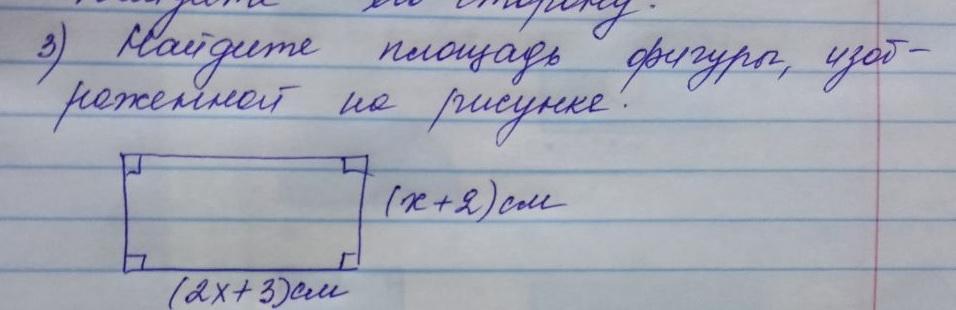 его сторону.
3) Найдите площадь фигуры, изоб-
раженной на рисунке.
(x+2)см
(2x+3)см